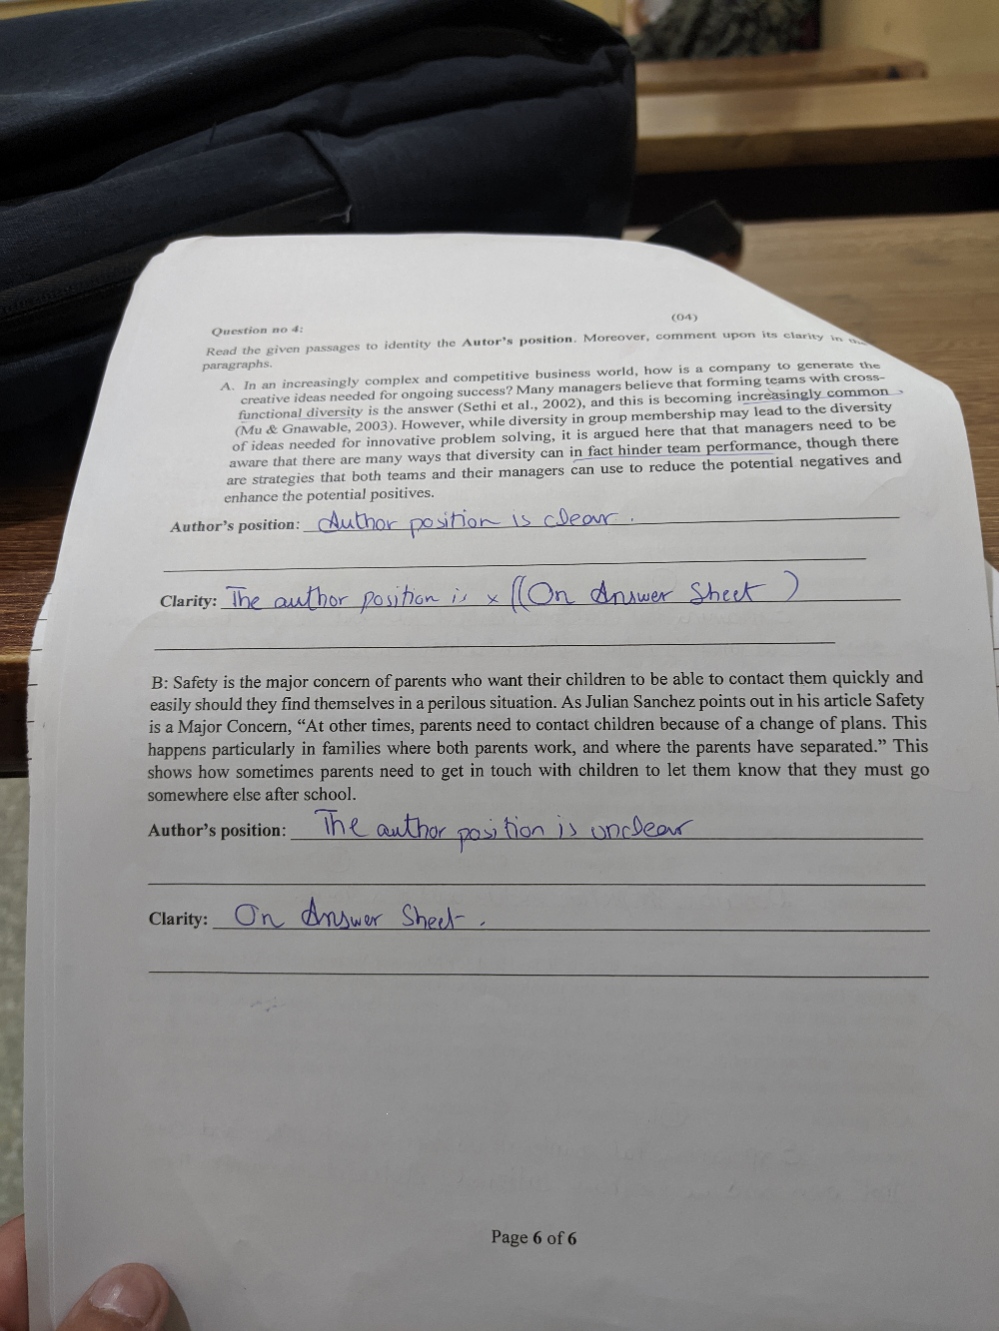 (04)
Question no 4:
Read the given passages to identity the Autor's position. Moreover, comment upon its clarity in
paragraphs.
A. In an increasingly complex and competitive business world, how is a company to generate the
creative ideas needed for ongoing success? Many managers believe that forming teams with cross-
functional diversity is the answer (Sethi et al., 2002), and this is becoming increasingly common
(Mu & Gnawable, 2003). However, while diversity in group membership may lead to the diversity
of ideas needed for innovative problem solving, it is argued here that that managers need to be
aware that there are many ways that diversity can in fact hinder team performance, though there
are strategies that both teams and their managers can use to reduce the potential negatives and
enhance the potential positives.
Author's position: Author position is clear.
Clarity: The author position is x ((On Answer Sheet)
B: Safety is the major concern of parents who want their children to be able to contact them quickly and
easily should they find themselves in a perilous situation. As Julian Sanchez points out in his article Safety
is a Major Concern, “At other times, parents need to contact children because of a change of plans. This
happens particularly in families where both parents work, and where the parents have separated.” This
shows how sometimes parents need to get in touch with children to let them know that they must go
somewhere else after school.
Author's position: The author position is unclear
Clarity: On Answer Sheet.
Page 6 of 6